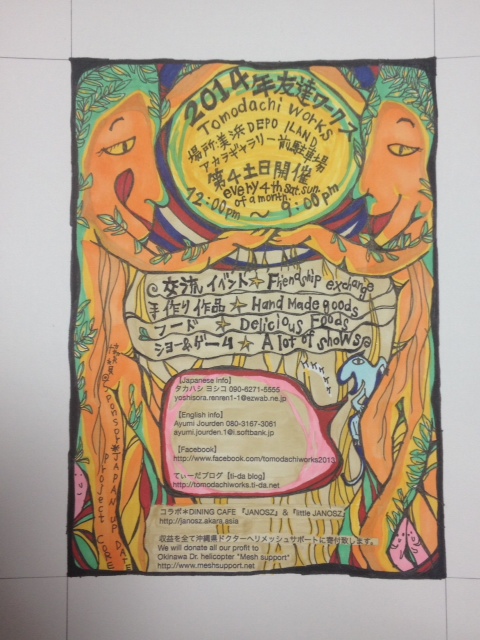 2014年友達ワークス
Tomodachi Works
場所:美浜DEPO ILAND
アカラギャラリー前駐車場
第4土日開催
every 4th sat. sun.
of a month.
12:00pm ～ 9:00pm
交流イベント☆ Friendship exchange
手作り作品 ☆ Hand made goods
フード ☆ Delicious Foods
ショー&ゲーム ☆ A lot of shows
【Japanese info】
タカハシ ヨシコ 090-6271-5555
yoshisora.renren1-1@ezwab.ne.jp
【English info】
Ayumi Jourden 080-3167-3061
ayumi.jourden.1@i.softbank.jp
【Facebook】
http://www.facebook.com/tomodachiworks2013
てぃーだブログ【ti-da blog】
http://tomodachiworks.ti-da.net
コラボ＊DINING CAFE 『JANOSZ』 & 『little JANOSZ』
http://janosz.akara.asia
収益を全て沖縄県ドクターヘリメッシュサポートに寄付致します。
We will donate all our profit to
Okinawa Dr. helicopter "Mesh support"
http://www.meshsupport.net
JAPAN UP DATE
Project Core